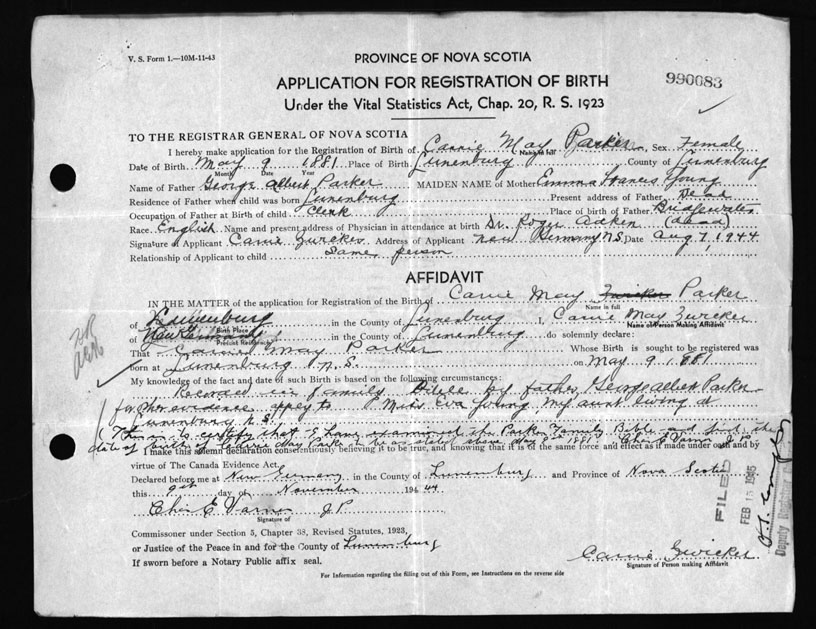 V. S. Form 1.—10M-11-43
PROVINCE OF NOVA SCOTIA
APPLICATION FOR REGISTRATION OF BIRTH
990083
Under the Vital Statistics Act, Chap. 20, R. S. 1923
TO THE REGISTRAR GENERAL OF NOVA SCOTIA
I hereby make application for the Registration of Birth of Carrie May Parker, Sex Female
Name in full
Date of Birth May 9 1881 Place of Birth Lunenburg County of Lunenburg
Month Date Year
Name of Father George Albert Parker MAIDEN NAME of Mother Emma Frances Young
Residence of Father when child was born Lunenburg Present address of Father Dead
Occupation of Father at Birth of child Clerk Place of birth of Father Bridgewater
Race English Name and present address of Physician in attendance at birth Dr. Roger (dead)
Signature of Applicant Carrie Zwicker Address of Applicant New Germany N.S. Date Aug 7, 1944
Relationship of Applicant to child Same person
AFFIDAVIT
IN THE MATTER of the application for Registration of the Birth of Carrie May Zwicker Parker
Name in full
of Lunenburg in the County of Lunenburg I, Carrie May Zwicker
Birth Place Name of Person Making Affidavit
of New Germany in the County of Lunenburg do solemnly declare:
Present Residence
That Carrie May Parker Whose Birth is sought to be registered was
born at Lunenburg N.S. on May 9 1881
My knowledge of the fact and date of such Birth is based on the following circumstances:
Record in family Bible by father, George Albert Parker
for other evidence apply to Miss Eva Young my aunt living at
Lunenburg N.S.
This is to certify that I have examined the Parker Family Bible and find the
date of birth of Carrie May Parker to be as stated above May 9th 1881. Chas E Varner J.P
I make this solemn declaration conscientiously believing it to be true, and knowing that it is of the same force and effect as if made under oath and by
virtue of The Canada Evidence Act.
Declared before me at New Germany in the County of Lunenburg and Province of Nova Scotia
this 9th day of November 1944
Chas E Varner J P
Signature of
Commissioner under Section 5, Chapter 38, Revised Statutes, 1923,
or Justice of the Peace in and for the County of Lunenburg
If sworn before a Notary Public affix seal.
Carrie Zwicker
Signature of Person making Affidavit
For Information regarding the filling out of this Form, see Instructions on the reverse side
FILED
FEB 15 1945
Deputy Registrar